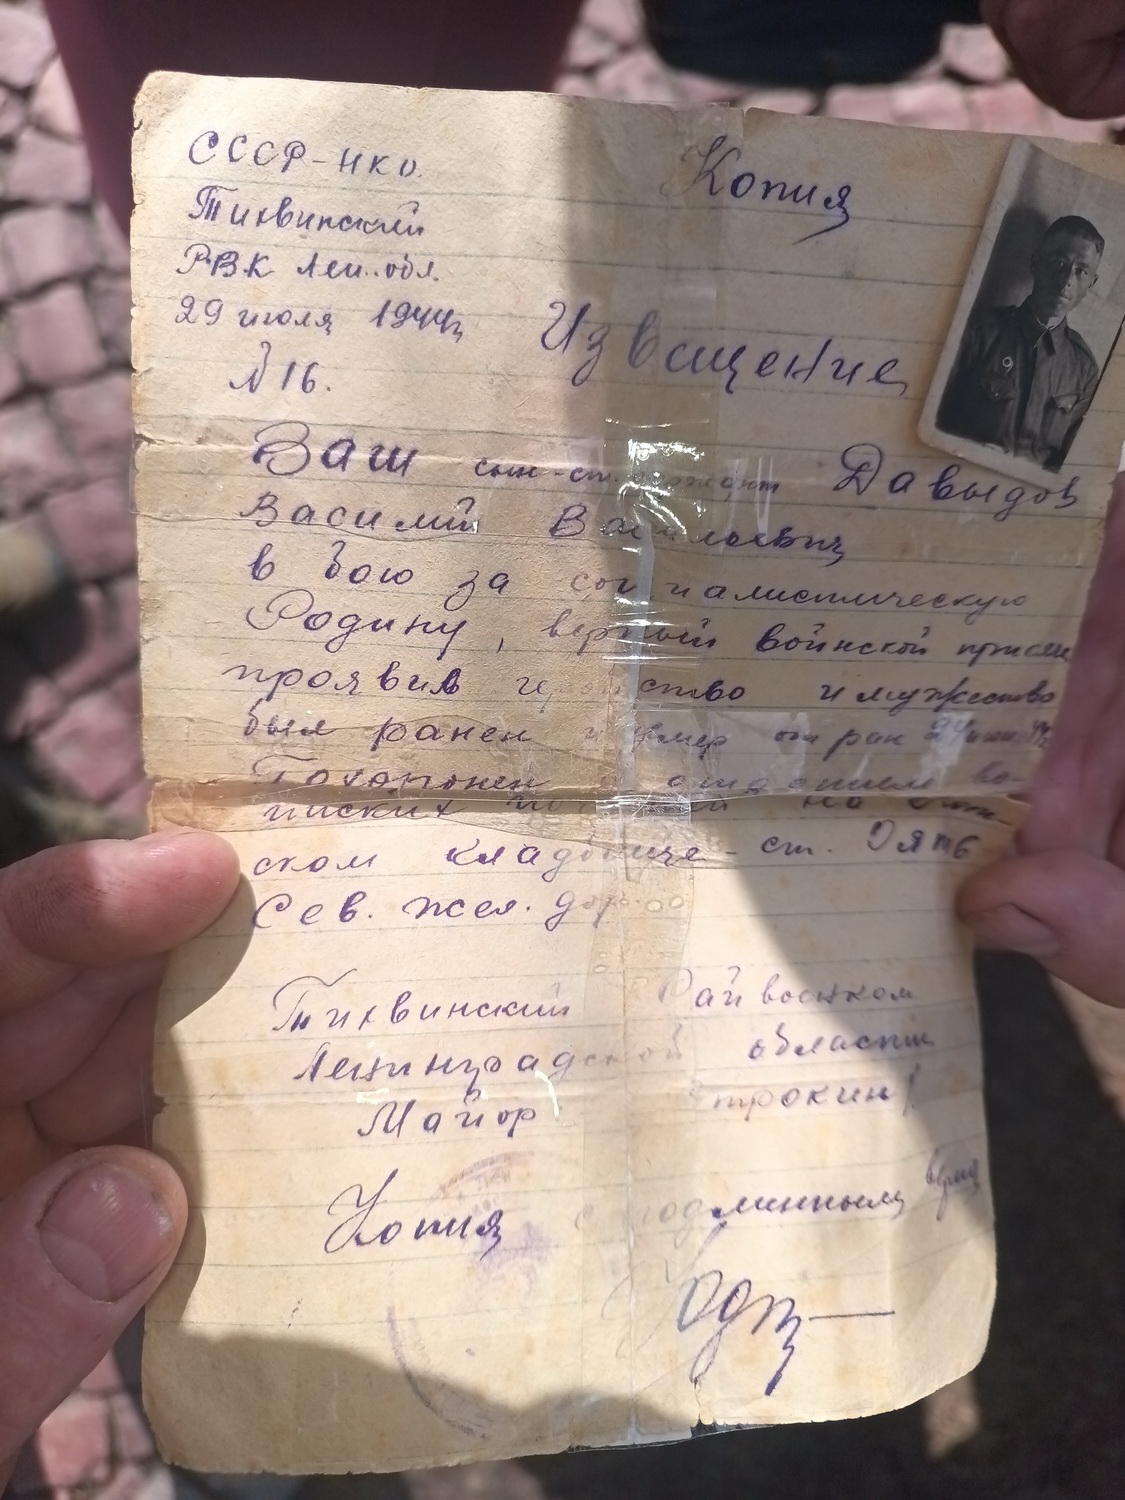 СССР-НКО.
Тихвинский
РВК Лен. обл.
29 июля 1944г
N 16.
Копия
Извещение
Ваш сын-ст. сержант Давыдов
Василий Васильевич
в бою за социалистическую
Родину, верный воинской присяге
проявив геройство и мужество
был ранен и умер от ран
Похоронен с отданием во-
инских почестей на
ском кладбище - ст. Оять
Сев. жел. дор.
Тихвинский Райвоенком
Ленинградской области
Майор
Копия с подлинным верна